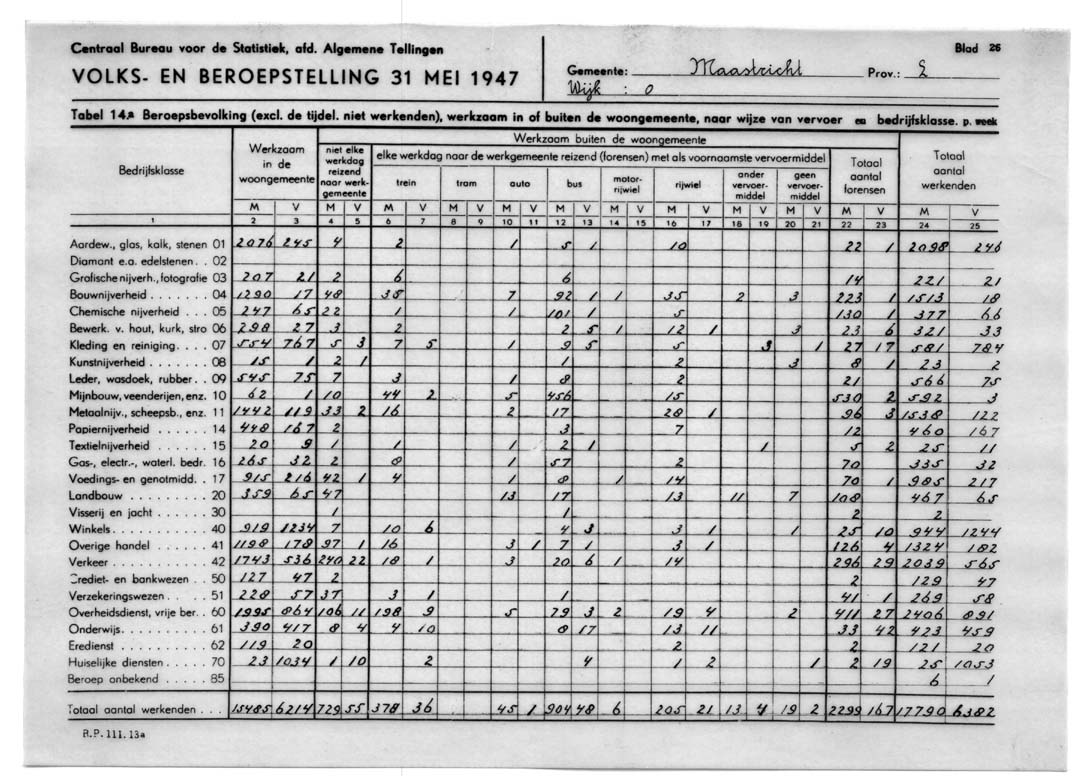 Centraal Bureau voor de Statistiek, afd. Algemene Tellingen Blad 26
VOLKS- EN BEROEPSTELLING 31 MEI 1947 Gemeente: Maastricht Prov.:
Wijk : 0
Tabel 14.a Beroepsbevolking (excl. de tijdel. niet werkenden), werkzaam in of buiten de woongemeente, naar wijze van vervoer en bedrijfsklasse. p. week
Bedrijfsklasse
Werkzaam in de woongemeente
Werkzaam buiten de woongemeente
niet elke werkdag reizend naar werkgemeente
elke werkdag naar de werkgemeente reizend (forensen) met als voornaamste vervoermiddel
trein tram auto bus motor-rijwiel rijwiel ander vervoer-middel geen vervoer-middel
Totaal aantal forensen
Totaal aantal werkenden
M V M V M V M V M V M V M V M V M V M V M V M V
1 2 3 4 5 6 7 8 9 10 11 12 13 14 15 16 17 18 19 20 21 22 23 24 25
Aardew., glas, kalk, stenen 01 2076 245 4 2 1 5 1 10 22 1 2098 246
Diamant e.a. edelstenen . . 02
Grafische nijverh., fotografie 03 207 21 2 6 6 14 221 21
Bouwnijverheid . . . . . . . 04 1290 17 48 35 7 92 1 1 35 2 3 223 1 1513 18
Chemische nijverheid . . . 05 247 65 22 1 1 101 1 5 130 1 377 66
Bewerk. v. hout, kurk, stro 06 298 27 3 2 2 5 1 12 1 3 23 6 321 33
Kleding en reiniging. . . . 07 554 767 5 3 7 5 1 9 5 5 3 1 27 17 581 784
Kunstnijverheid . . . . . . 08 15 1 2 1 1 2 3 8 1 23 2
Leder, wasdoek, rubber. . 09 545 75 7 3 1 8 2 21 566 75
Mijnbouw, veenderijen, enz. 10 62 1 10 44 2 5 456 15 530 2 592 3
Metaalnijv., scheepsb., enz. 11 1442 119 33 2 16 2 17 28 1 96 3 1538 122
Papiernijverheid . . . . . . 14 448 167 2 3 7 12 460 167
Textielnijverheid . . . . . . 15 20 9 1 1 1 2 1 1 5 2 25 11
Gas-, electr.-, waterl. bedr. 16 265 32 2 8 1 57 2 70 335 32
Voedings- en genotmidd. . 17 915 216 42 1 4 1 8 1 14 70 1 985 217
Landbouw . . . . . . . . . 20 359 65 47 13 17 13 11 7 108 467 65
Visserij en jacht . . . . . . 30 1 1 2 2
Winkels . . . . . . . . . . 40 919 1234 7 10 6 4 3 3 1 1 25 10 944 1244
Overige handel . . . . . . 41 1198 178 97 1 16 3 1 7 1 3 1 126 4 1324 182
Verkeer . . . . . . . . . . 42 1743 536 240 22 18 1 3 20 6 1 14 296 29 2039 565
Crediet- en bankwezen . . 50 127 47 2 2 129 47
Verzekeringswezen . . . . 51 228 57 37 3 1 1 41 1 269 58
Overheidsdienst, vrije ber. . 60 1995 864 106 11 198 9 5 79 3 2 19 4 2 411 27 2406 891
Onderwijs. . . . . . . . . . 61 390 417 8 4 4 10 8 17 13 11 33 42 423 459
Eredienst . . . . . . . . . 62 119 20 2 2 121 20
Huiselijke diensten . . . . . 70 23 1034 1 10 2 4 1 2 1 2 19 25 1053
Beroep onbekend . . . . . 85 6 1
Totaal aantal werkenden . . . 15485 6214 729 55 378 36 45 1 904 48 6 205 21 13 4 19 2 2299 167 17790 6382
R.P. 111. 13a